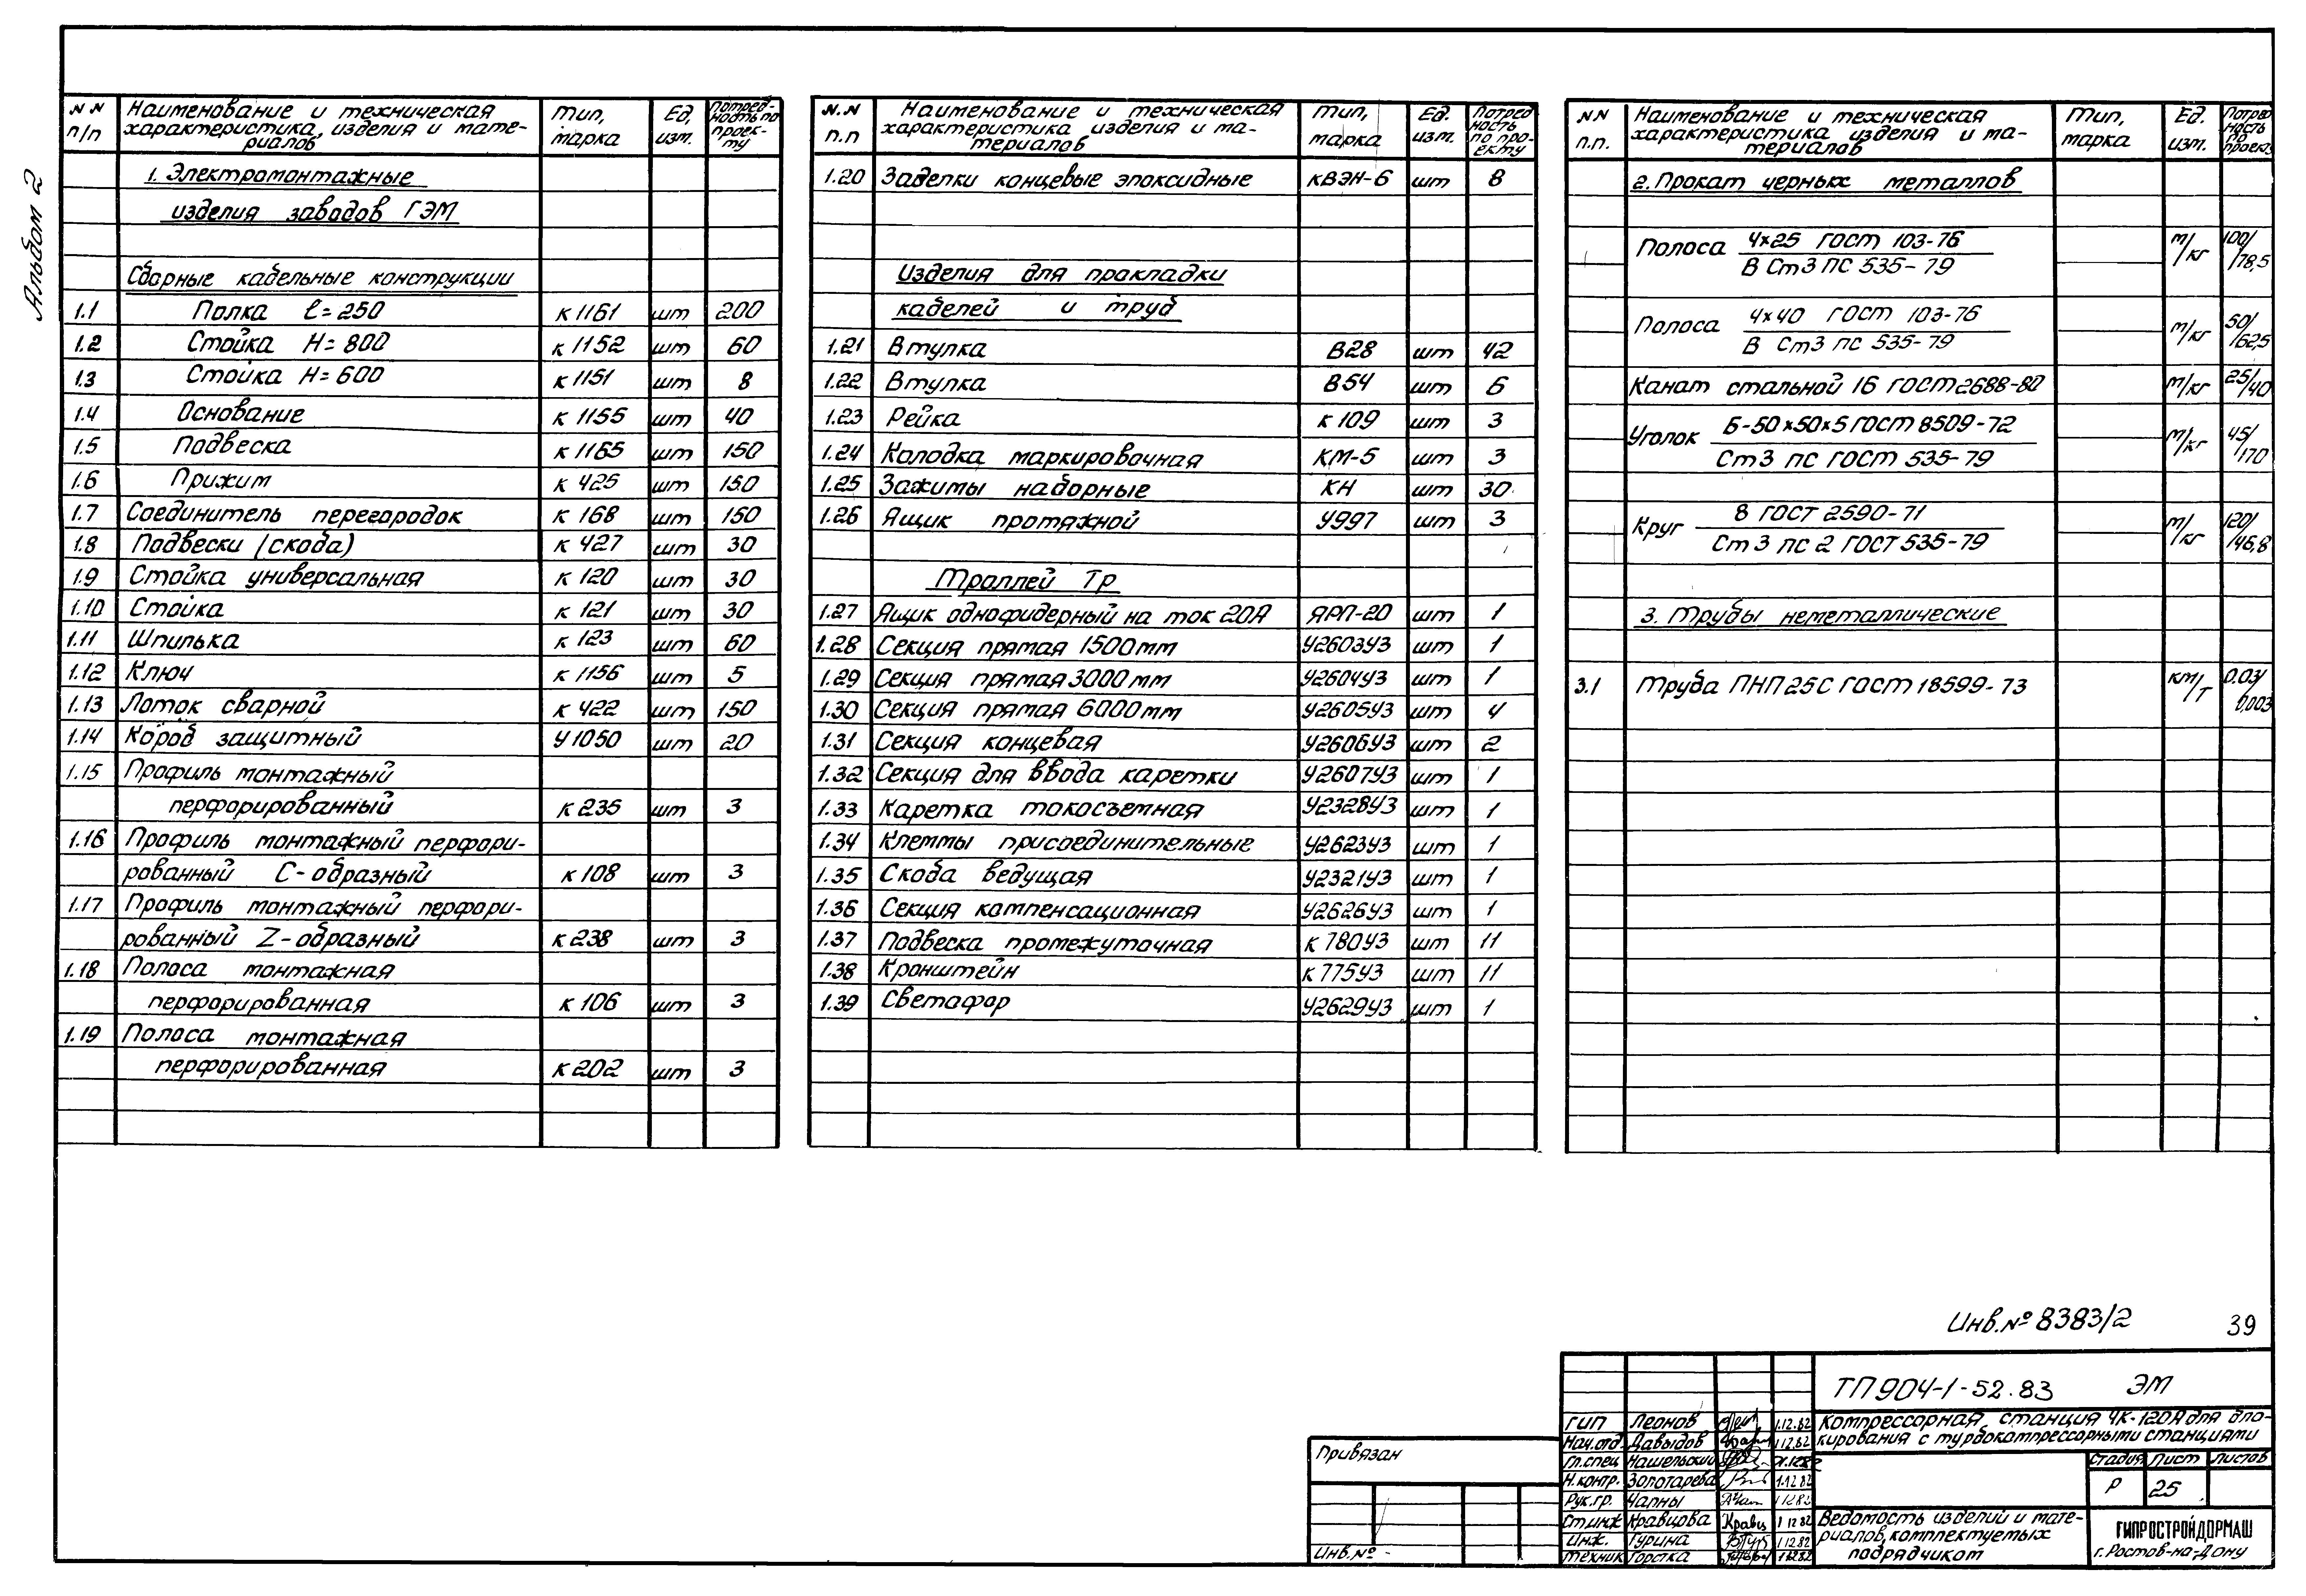 Альбом 2
NN п/п | Наименование и техническая характеристика, изделия и материалов | Тип, марка | Ед. изм. | Потребность по проекту
1. Электромонтажные
изделия заводов ГЭМ
Сборные кабельные конструкции
1.1 Полка ℓ=250 К1161 шт 200
1.2 Стойка H=800 К1152 шт 60
1.3 Стойка H=600 К1151 шт 8
1.4 Основание К1155 шт 40
1.5 Подвеска К1165 шт 150
1.6 Прижим К425 шт 150
1.7 Соединитель перегородок К168 шт 150
1.8 Подвески (скоба) К427 шт 30
1.9 Стойка универсальная К120 шт 30
1.10 Стойка К121 шт 30
1.11 Шпилька К123 шт 60
1.12 Ключ К1156 шт 5
1.13 Лоток сварной К422 шт 150
1.14 Короб защитный У1050 шт 20
1.15 Профиль монтажный
перфорированный К235 шт 3
1.16 Профиль монтажный перфори-
рованный С-образный К108 шт 3
1.17 Профиль монтажный перфори-
рованный Z-образный К238 шт 3
1.18 Полоса монтажная
перфорированная К106 шт 3
1.19 Полоса монтажная
перфорированная К202 шт 3
N.N п.п | Наименование и техническая характеристика изделия и материалов | Тип, марка | Ед. изм. | Потребность по проекту
1.20 Заделки концевые эпоксидные КВЭН-6 шт 8
Изделия для прокладки
кабелей и труб
1.21 Втулка В28 шт 42
1.22 Втулка В54 шт 6
1.23 Рейка К109 шт 3
1.24 Колодка маркировочная КМ-5 шт 3
1.25 Зажимы наборные КН шт 30
1.26 Ящик протяжной У997 шт 3
Троллей Тр
1.27 Ящик однофидерный на ток 20А ЯРП-20 шт 1
1.28 Секция прямая 1500мм У2603У3 шт 1
1.29 Секция прямая 3000мм У2604У3 шт 1
1.30 Секция прямая 6000мм У2605У3 шт 4
1.31 Секция концевая У2606У3 шт 2
1.32 Секция для ввода каретки У2607У3 шт 1
1.33 Каретка токосъемная У2328У3 шт 1
1.34 Клеммы присоединительные У2623У3 шт 1
1.35 Скоба ведущая У2321У3 шт 1
1.36 Секция компенсационная У2626У3 шт 1
1.37 Подвеска промежуточная К780У3 шт 11
1.38 Кронштейн К775У3 шт 11
1.39 Светафор У2629У3 шт 1
NN п.п. | Наименование и техническая характеристика изделия и материалов | Тип, марка | Ед. изм. | Потребность по проекту
2. Прокат черных металлов
Полоса 4×25 ГОСТ 103-76 / В Ст3 ПС 535-79 м/кг 100/78,5
Полоса 4×40 ГОСТ 103-76 / В Ст3 ПС 535-79 м/кг 50/62,5
Канат стальной 16 ГОСТ 2688-80 м/кг 25/40
Уголок Б-50×50×5 ГОСТ 8509-72 / Ст3 ПС ГОСТ 535-79 м/кг 45/170
Круг 8 ГОСТ 2590-71 / Ст3 ПС 2 ГОСТ 535-79 м/кг 120/46,8
3. Трубы неметаллические
3.1 Труба ПНП 25С ГОСТ 18599-73 км/т 0.03/0,003
Инв.№ 8383/2 39
ТП 904-1-52.83 ЭМ
Компрессорная станция 4К-120А для бло-
кирования с турбокомпрессорными станциями
ГИП Леонов 1.12.82
Нач.отд. Давыдов 1.12.82
Гл.спец Нашельский
Н.контр. Золотарева 1.12.82
Рук.гр. Чапны 1.12.82
Ст.инж Кравцова Кравц 1.12.82
Инж. Гурина 1.12.82
Техник Горстка 1.12.82
Стадия Лист Листов
Р 25
Ведомость изделий и мате-
риалов, комплектуемых
подрядчиком
ГИПРОСТРОЙДОРМАШ
г. Ростов-на-Дону
Привязан
Инв.№